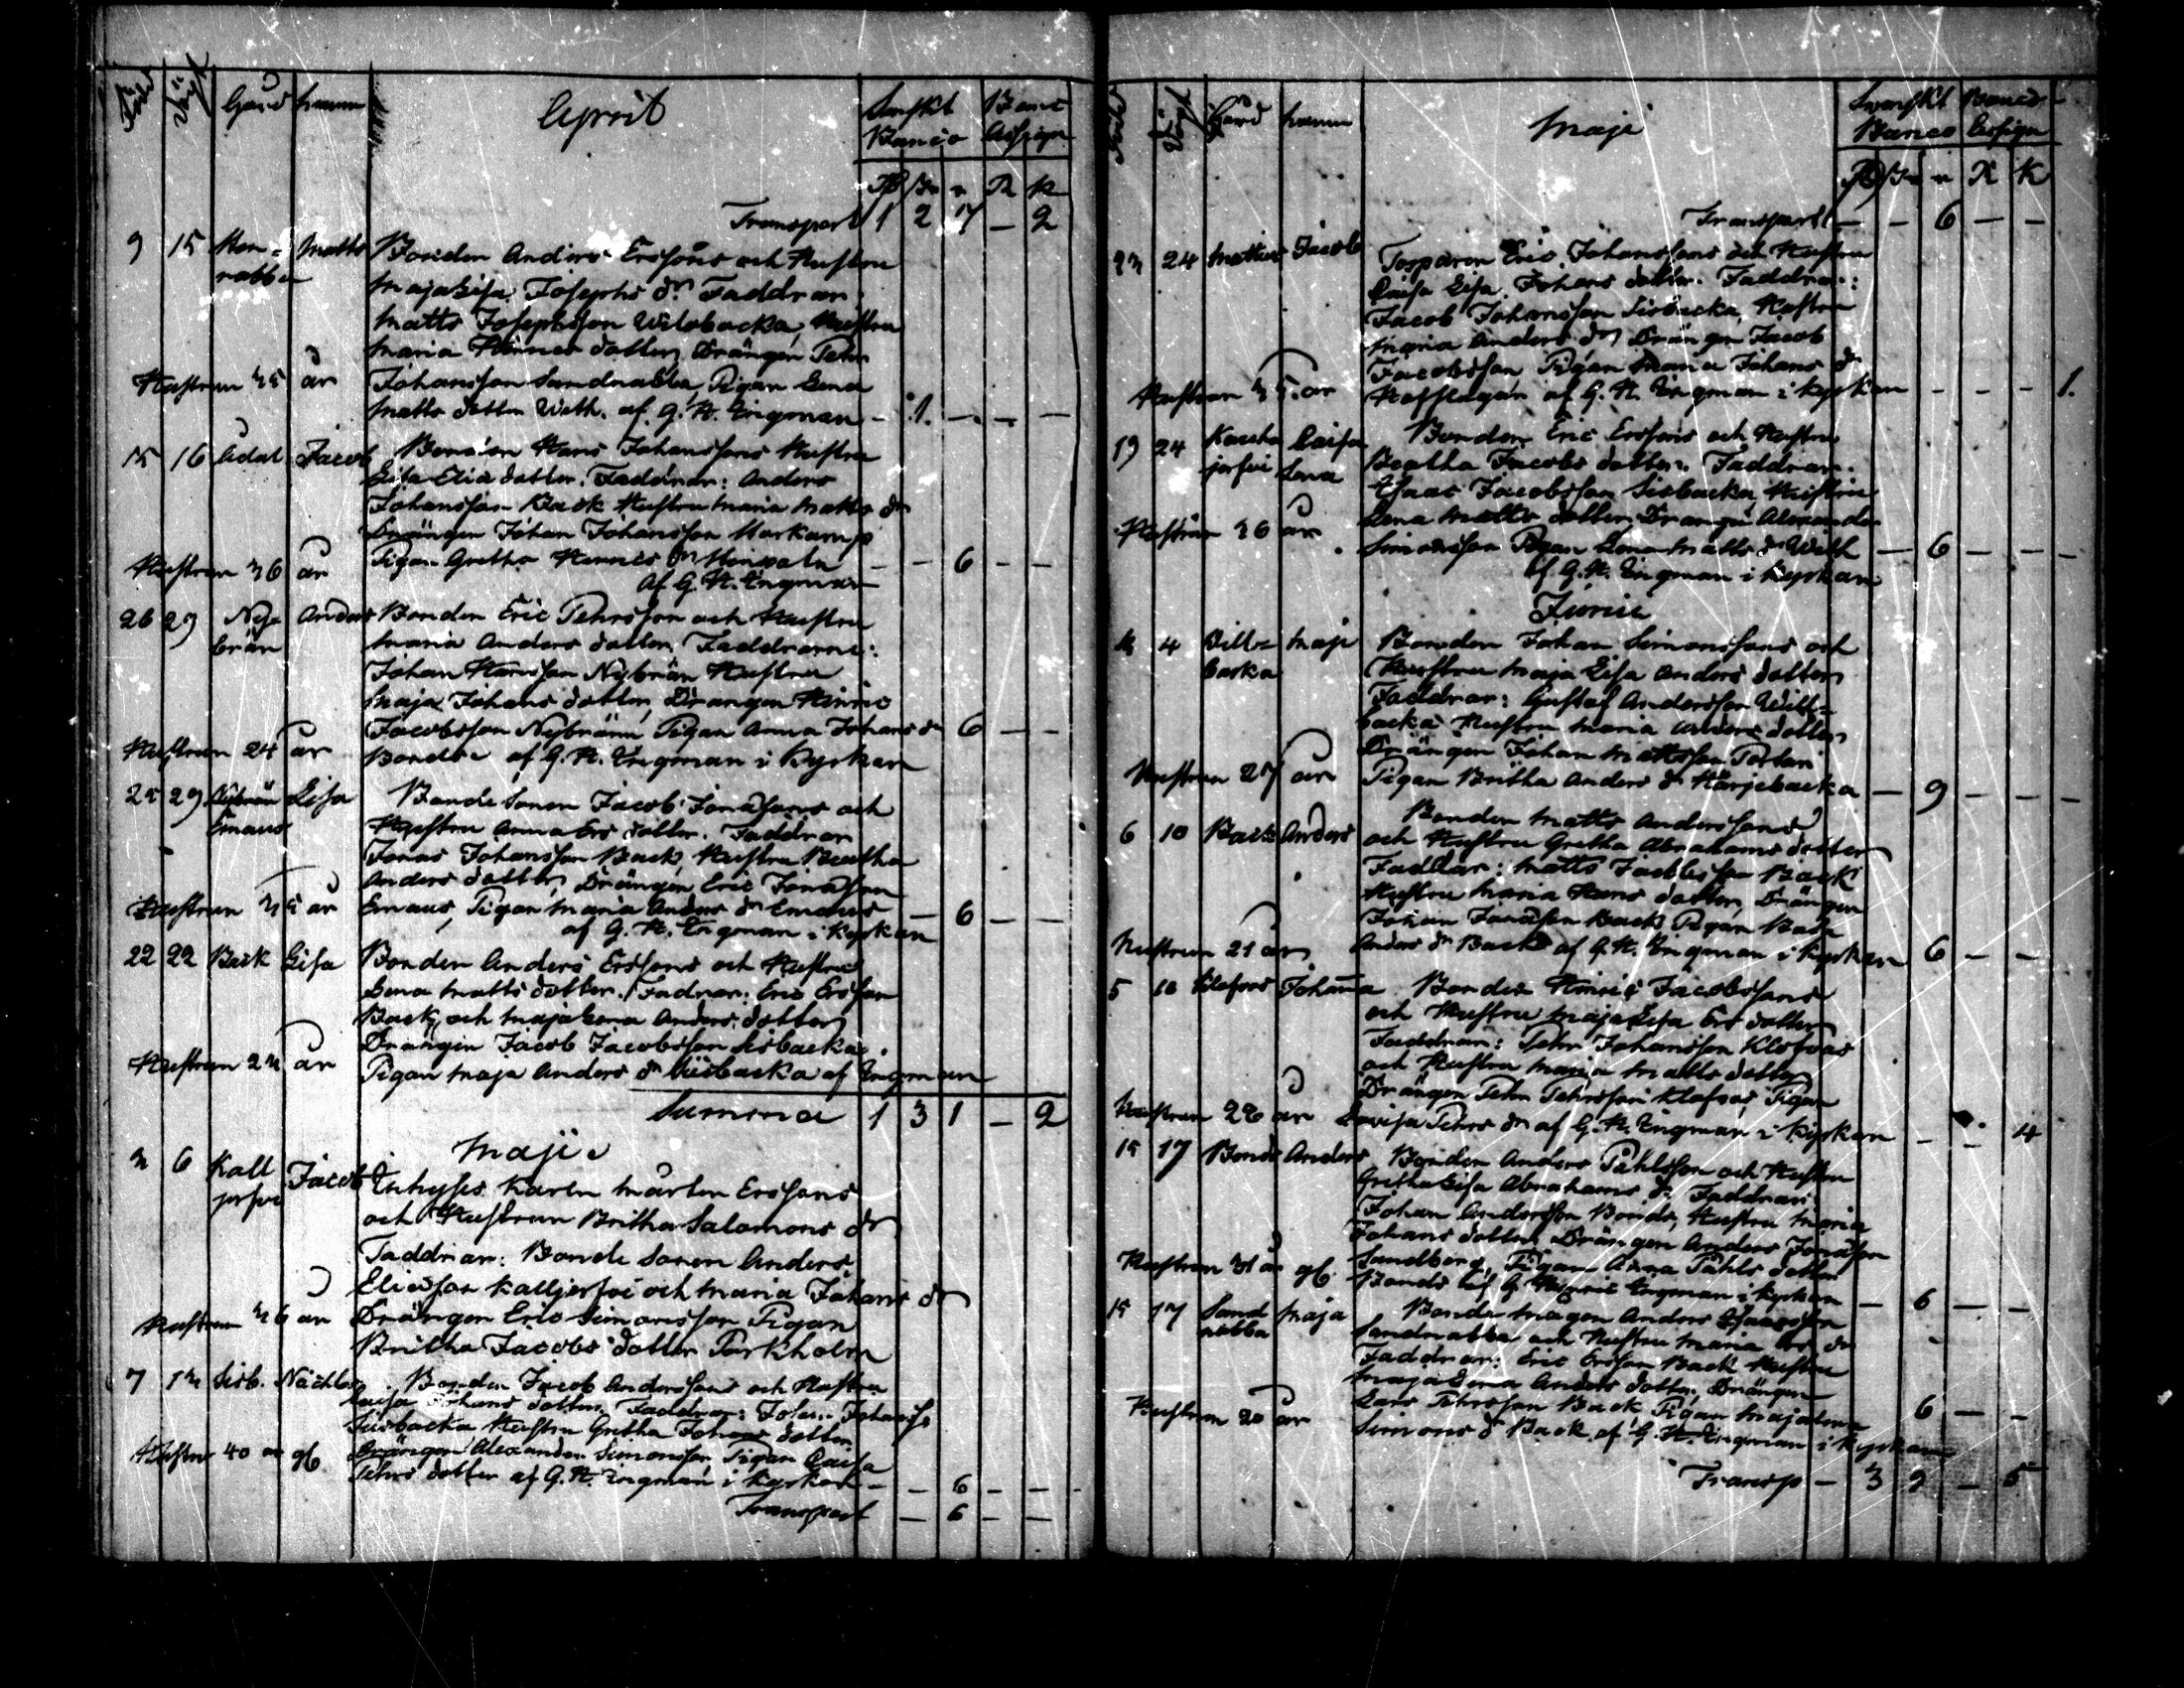 Född Döpt Gård Namn April Swenskt Banco
Banco Assign
Rd Sk r R K
Transport 1 2 7 – 2
9 15 Hen= Matts Bonden Anders Erssons och Hustru
nabba MajaLisa Josephs dr Faddrar:
Matts Josephsson Wilobacka, Hustru
Maria Hinrics dotter, Drängen Pehr
Hustrun 35 år Johansson Sandnabba, Pigan Lena
Matts dotter Weth. af G. H. Engman – 1. – – –
15 16 Ådal Jacob Bonden Hans Johanssons Hustru
Lisa Elias dotter. Faddrar: Anders
Johansson Back Hustru Maria Matts dr
Drängen Johan Johansson Markamp
Hustrun 36 år Pigan Gretha Hinrics dr – – 6 – –
af G. H. Engman
26 29 Ny- Anders Bonden Eric Pehrsson och Hustru
brän Maria Anders dotter, Faddrarne:
Johan Hansson Nybrän Hustru
Maja Johans dotter, Drangen Hinric
Jacobsson Nybränn Pigan Anna Johans dr 6 – –
Hustrun 24 år Bonds af G. H. Engman i Kyrkan
25 29 Nybrän Lisa Bonde Sonen Jacob Jonassons och
Emaus Hustru Anna Ers dotter. Faddrar
Jonas Johansson Back, Hustru Beatha
Anders dotter, Drängen Eric Jonasson
Hustrun 35 år Emaus, Pigan Maria Anders dr Emaus – 6 – –
af G. H. Engman i Kyrkan
22 22 Back Lisa Bonden Anders Erssons och Hustru
Lena Matts dotter. Fadrar: Eric Ersson
Back, och MajaLena Anders dotter
Drängin Jacob Jacobsson Sisbacka.
Hustrun 23 år Pigan Maja Anders dr Sisbacka af Engman
Summa 1 3 1 – 2
Maji
3 6 Kall Jacob Inhyses Karln Mårten Erssons
jerfvi och Hustrun Britha Salomons dr
Faddrar: Bonde Sonen Anders
Eliasson Kalljerfvi och Maria Johans dr
Hustrun 36 år Drängen Eric Simonsson Pigan
Britha Jacobs dotter Parkholm
7 13 Sisb. Bonden Jacob Anderssons och Hustru
Caisa Johans dotter. Faddrar: Johan Johanss
Sisbacka Hustru Gretha Johans dotter.
Hustru 40 år gl. Drängen Alexander Simonsson Pigan Caisa
Pehrs dotter af G. H. Engman i Kyrkan – – 6 – –
Transport – 6 – –
Född Döpt Gård Namn Maji Swenskt Banco
Banco Assign
Rd Sk r R K
Transport – – 6 – –
23 24 Jacob Torparen Eric Johanssons och Hustru
Caisa Lisa Johans dotter. Faddrar:
Jacob Johansson Sisbacka, Hustru
Maria Anders dr Drängen Jacob
Jacobsson Pigan Maria Johans dr
Hustrun 35 år af G. H. Engman i Kyrkan – – – 1.
19 24 Caisa Bonden Eric Erssons och Hustru
jerfvi Lena Beatha Jacobs dotter. Faddrar.
Isaac Jacobsson Sisbacka, Hustru
Hustrun 36 år Lena Matts dotter, Drangen Alexander
Simonsson Pigan Lena Matts dr Weth – 6 – – –
af G. H. Engman i Kyrkan
Junii
3 4 Vill= Maja Bonden Johan Simonssons och
backa Hustru Maja Lisa Anders dotter
Faddrar: Gustaf Andersson Will=
backa Hustru Maria Anders dotter
Drängen Johan Mattsson
Hustrun 27 år Pigan Britha Anders dr Härjebacka – 9 – – –
Bonden Matts Anderssons
6 10 Back Anders och Hustru Gretha Abrahams dotter
Faddar: Matts Jacobsson Back
Hustru Maria Hans dotter, Drängen
Johan Jonasson Back, Pigan
Hustrun 21 år Anders dr Back af G. H. Engman i Kyrkan 6 – –
5 10 Klofvas Johanna Bonden Hinric Jacobssons
och Hustru MajaLisa Ers dotter
Faddrar: Pehr Johansson Klofvas
och Hustru Maria Matts dotter
Drängen Pehr Pehrsson Klofvas, Pigan
Hustrun 26 år Lovisa Pehrs dr af G. H. Engman i Kyrkan – – 4
15 17 Bonds Anders Bonden Anders Påhlsson och Hustru
GrethaLisa Abrahams dr Faddrar:
Johan Andersson Bonds, Hustru Maria
Johans dotter, Drängen Anders Jonasson
Hustrun 31 år gl. Sandberg, Pigan Anna Påhls dotter
Bonds af G. Hinric Engman i Kyrkan – 6 – –
15 17 Sand Maja Bonde Magen Anders Isaacsson
nabba Sandnabba och Hustru Maria Ers dr
Faddrar: Eric Ersson Back Hustru
MajaLena Anders dotter, Drängen
Hustrun 20 år Lars Pehrsson Back Pigan Majalena 6 – –
Simons dr Back af G. H. Engman i Kyrkan
Transp – 3 9 – 5